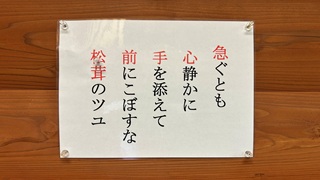 急ぐとも
心静かに
手を添えて
前にこぼすな
松茸のツユ